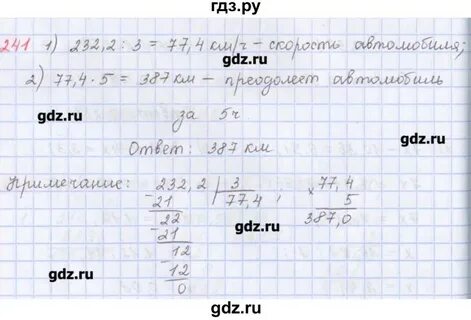 гдз.ру
241 1) 232,2 : 3 = 77,4 км/ч – скорость автомобиля;
2) 77,4 · 5 = 387 км – преодолеет автомобиль
gdz.ru gdz.ru
за 5ч
Ответ: 387 км
gdz.ru gdz.ru
Примечание: 232,2 | 3 ; × 77,4
21 77,4 5
22 387,0
21
12
12
0
gdz.ru gdz.ru
gdz.ru